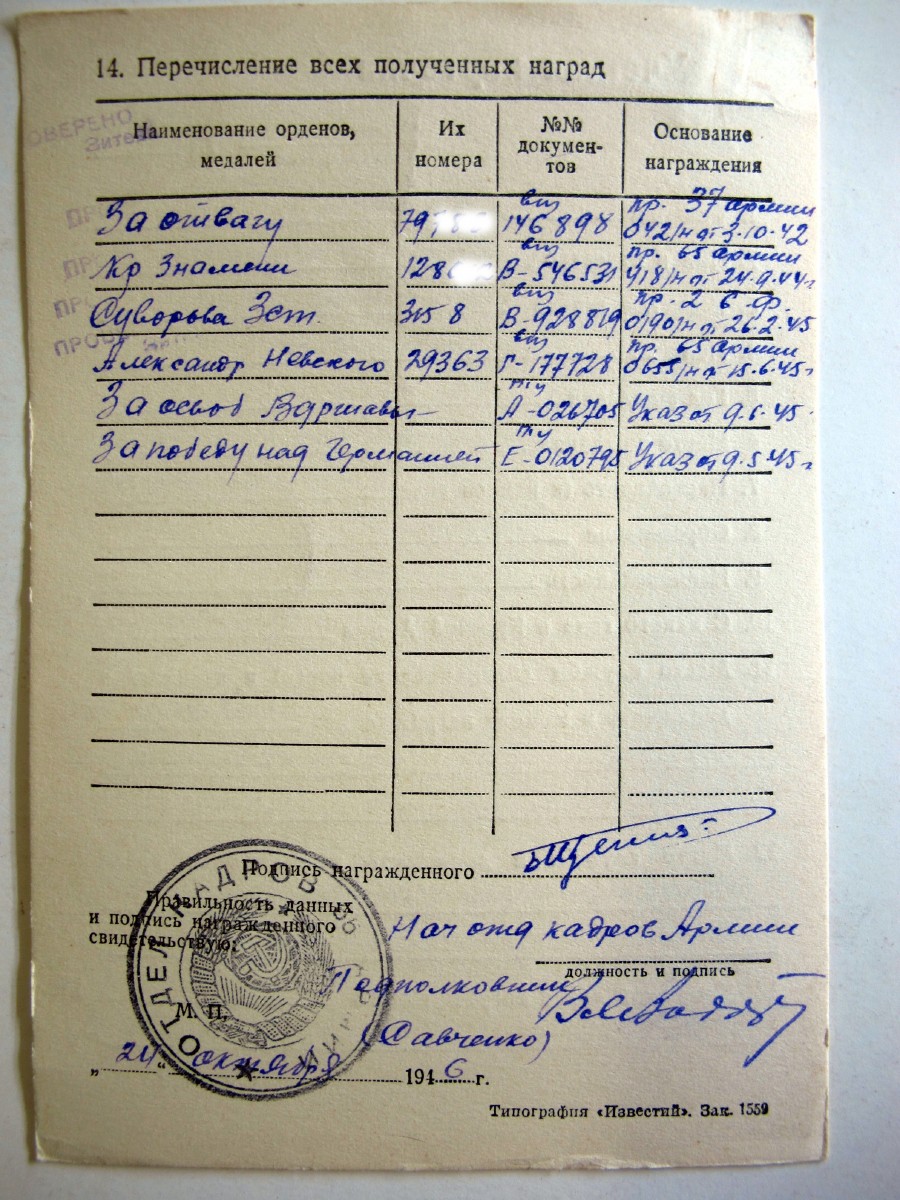 14. Перечисление всех полученных наград
ОВЕРЕНО
Наименование орденов, медалей
Их номера
№№ докумен-тов
Основание награждения
За отвагу 79 вкз 146898 пр. 37 армии 042/н от 3-10-42
Кр Знамени 128 вкз В-546531 пр. 65 армии 418/н от 24.9.44г
Суворова 3 ст. 3158 вкз В-928819 пр. 2 б.ф. 0190/н от 26.2.45
Александр Невского 29363 вкз Г-177728 пр. 65 армии 0655/н от 15.6.45г
За освоб Варшавы — А-026705 Указ от 9.6.45
За победу над Германией Е-0120795 Указ от 9.5.45г
Подпись награжденного
Правильность данных
и подпись награжденного
свидетельствую:
Нач отд кадров Армии
должность и подпись
Подполковник
М. П.
(Савченко)
ОТДЕЛ КАДРОВ
„24" октября 1946 г.
Типография «Известий». Зак. 1559